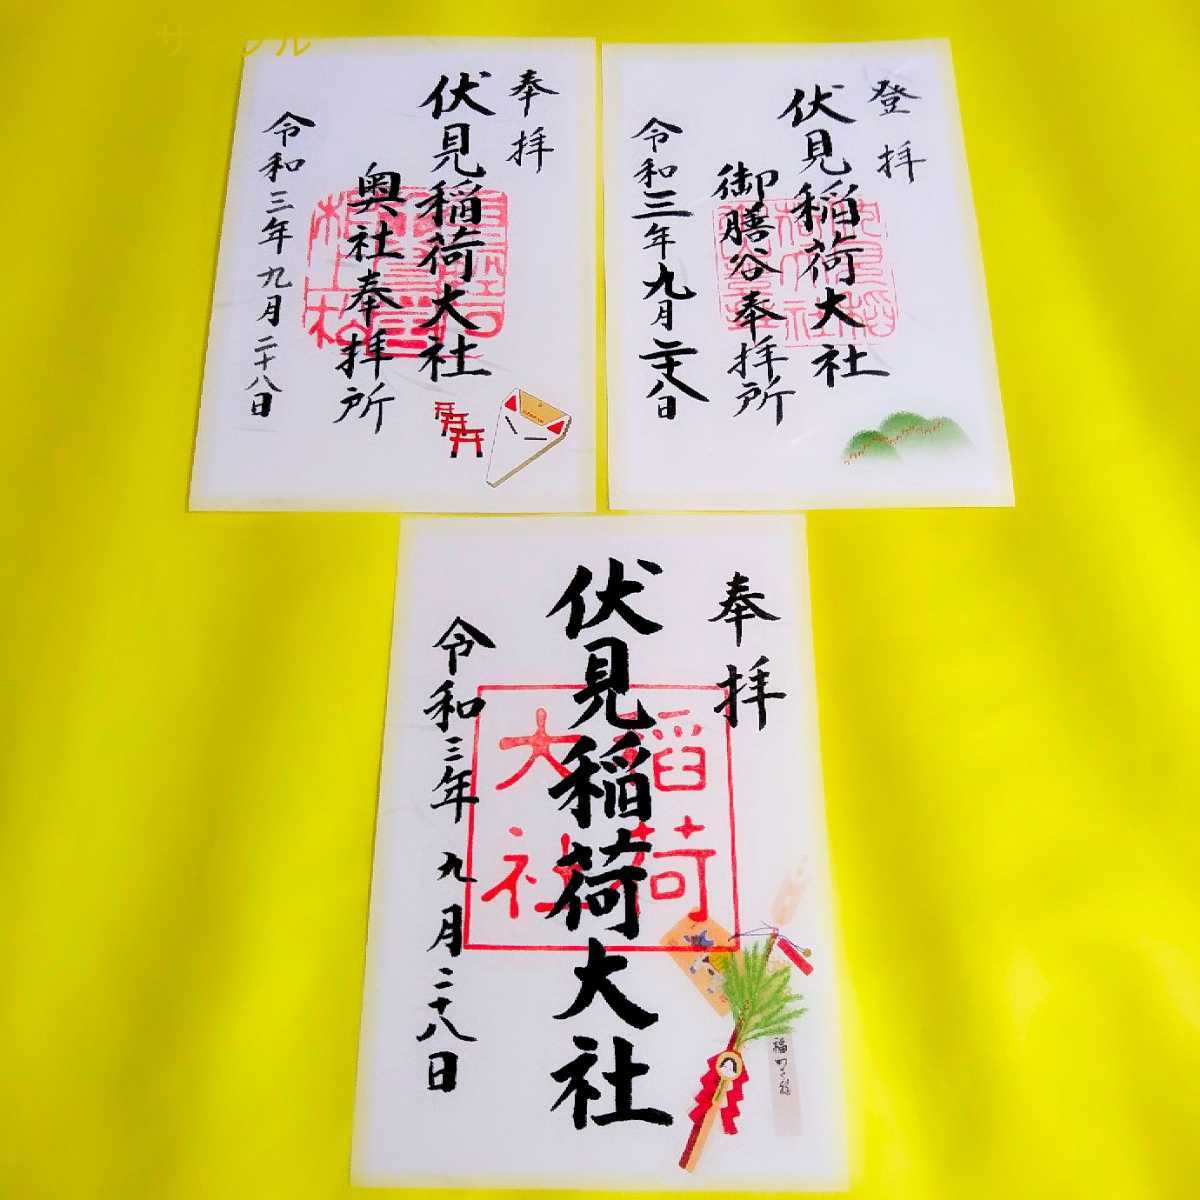 サンプル
奉拝
伏見稲荷大社
奥社奉拝所
令和三年九月二十八日
登拝
伏見稲荷大社
御膳谷奉拝所
令和三年九月二十八日
奉拝
伏見稲荷大社
稲荷大社
令和三年九月二十八日